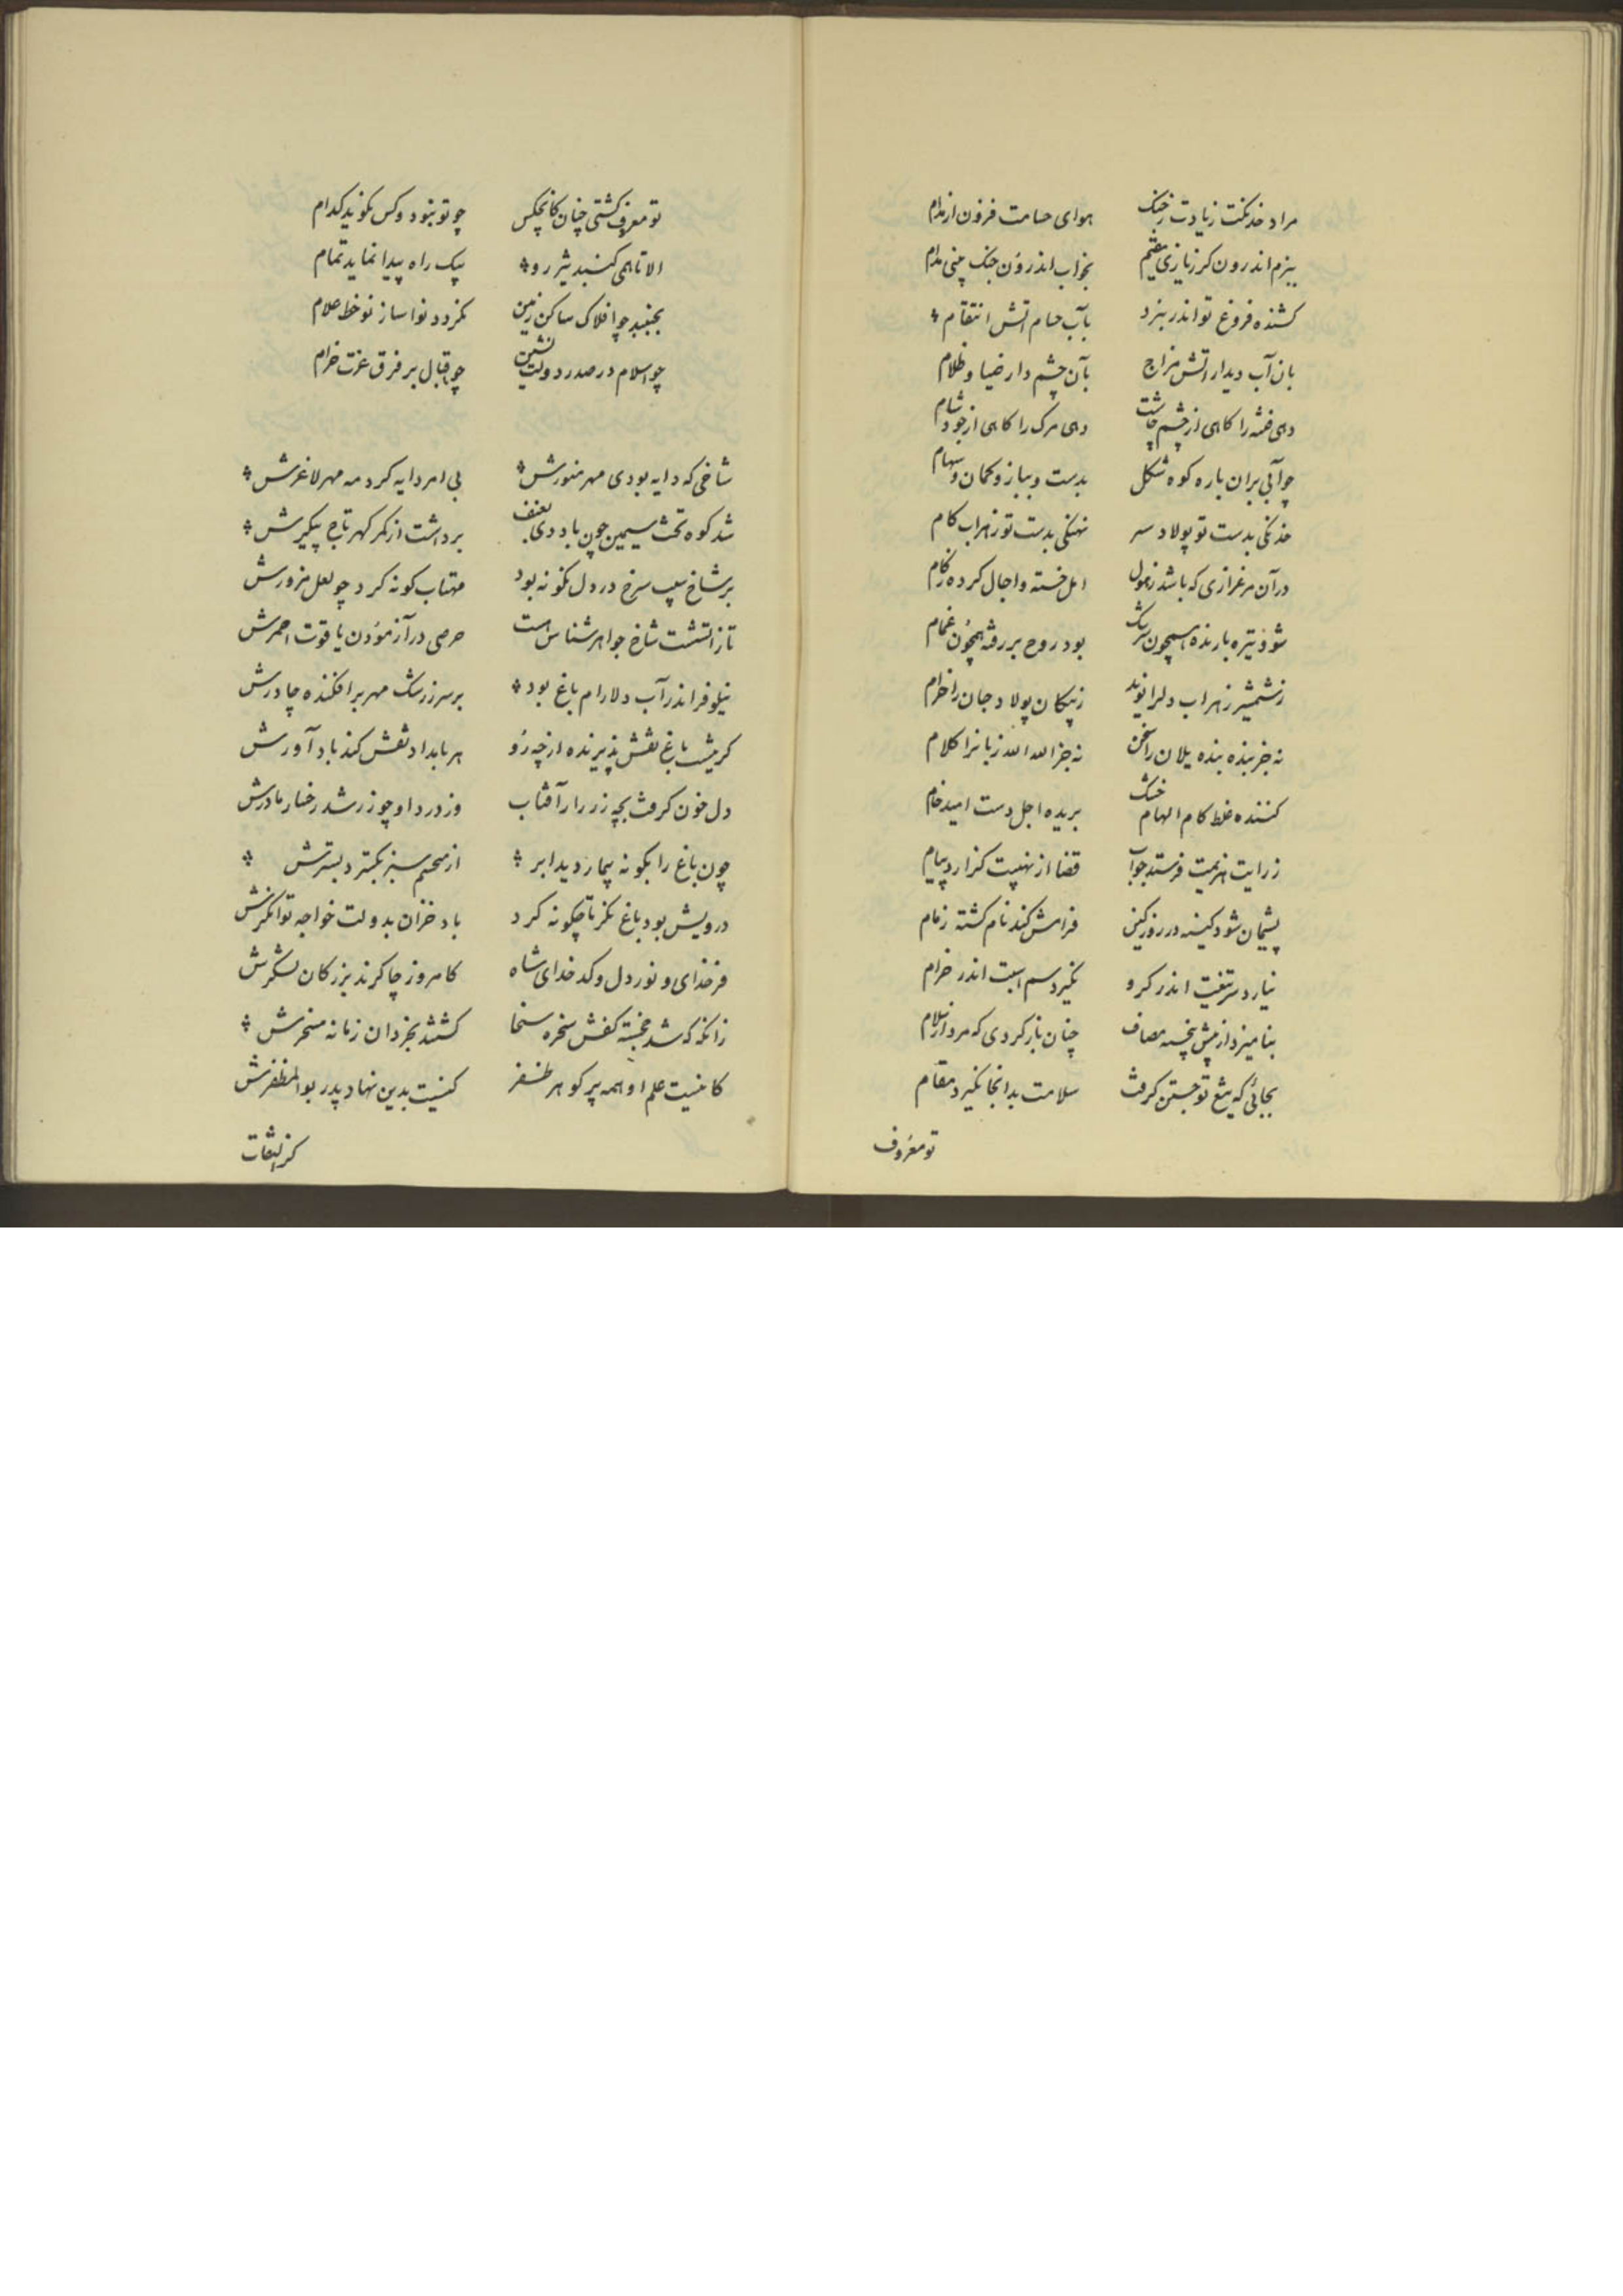 مراد خدنکت زیادت ز جنک هوای حسامت فزون از مدام
ببزم اندرون کرز یازی مقیم بخواب اندرون جنک بینی مدام
کشنده فروغ تو اندر نبرد بآب حسام آتش انتقام
بان آب دیدار اتش مزاج بآن چشم دار ضیا و ظلام
دهی فتنه را کاهی از چشم چاشت دهی مرک را کاهی از جود شام
چو آیی بران باره کوه شکل بدست و ببازو کمان و سهام
خدنکی بدست تو پولاد سر نهنکی بدست تو زهراب کام
در آن مرغزاری که باشد ز هول امل خسته و اجال کرده زکام
شود تیره بارنده همچون سرشک بود روح بر رفته همچون غمام
ز شمشیر زهراب دلرا نوید ز پیکان پولاد جان را خرام
نه جز بنده بنده یلان را سخن نه جز الله الله زبانرا کلام
کننده غلط کام الهام خنک بریده اجل دست امید خام
ز رایت هزیمت فرستد جواب قضا از نهیبت کزارد پیام
پشیمان شود کینه در روز کین فرامش کند نام کشته ز مام
نیارد سر تیغت اندر کرو نکیرد سم اسبت اندر خرام
بنامیزد از پیش پنجه مصاف چنان باز کردی که مرد از سلام
بجائی که تیغ تو جستن کرفت سلامت بدانجا نکیرد مقام
تو معروف
تو معروف کشتی چنان کانچکس چو تو نبود و کس نکوید کدام
الا تا همی کنبد تیز رو بیک راه پیدا نماید تمام
بجنبد چو افلاک ساکن زمین نکردد نوا ساز نو خط علام
چو اسلام در صدر دولت نشین چو اقبال بر فرق عزت خرام
شاخی که دایه بودی مهر منورش بی امر دایه کرد مه مهر لاغرش
شد کوه تخت سیمین چون باد دی بعنف برداشت از کمر کهر تاج پیکرش
بر شاخ سیب سرخ در دل نکونه بود مهتاب کونه کرد چو لعل مزورش
تا زاتشست شاخ جواهر شناس است حرصی در آزمودن یاقوت احمرش
نیلوفر اندر آب دلارام باغ بود بر سر ز رشک مهر برافکنده چادرش
کر نیست باغ نقش پذیرنده از چه رو هر بامداد نقش کند باد آورش
دل خون کرفت بچه زر را ز آفتاب وز درد او چو زر شد رخسار مادرش
چون باغ را بکونه بیمار دید ابر از ملحم سبز بکسترد بسترش
درویش بود باغ نکر تا چکونه کرد باد خزان بدولت خواجه توانکرش
فرخدای و نور دل و کدخدای شاه کامروز چاکرند بزرکان لشکرش
زانکه که شد خجسته کفش سخره سخا کشتند بخردان زمانه مسخرش
کانیت علم او همه پر کوهر ظفر کنیت بدین نهاد پدر بوالمظفرش
کز التفات